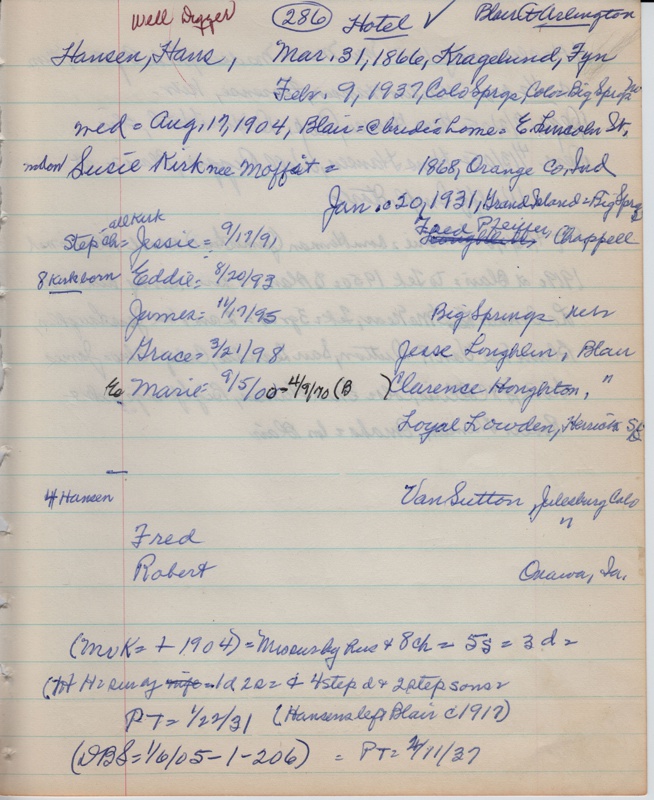 Well Digger 286 Hotel ✓ Blair & Arlington
Hansen, Hans, Mar. 31, 1866, Kragelund, Fyn
Febr. 9, 1937, Colo Sprgs, Colo = Big Sprgs
wed = Aug. 17, 1904, Blair = @ brides home = E. Lincoln St,
Susie Kirk nee Moffat = 1868, Orange Co, Ind
Jan. c20, 1931, Grand Island = Big Sprgs
all Kirk Fred Pfeiffer, Chappell
Step ch = Jessie = 9/17/91
8 Kirk born Eddie = 8/20/93
James = 11/17/95 Big Springs
Grace = 3/21/98 Jesse Loughlin, Blair
Marie = 9/5/00 = 4/9/70 (B ) Clarence Houghton, "
Loyal Lowden,
4 Hansen Van Sutton, Julesburg Colo
"
Fred
Robert Onawa, Ia.
(MVK = + 1904) = by hus + 8 ch = 5s = 3d =
4 step d + 2 step sons =
PT = 1/22/31 (Hansens left Blair c1917)
(DBS = 1/6/05 - 1 - 206) = PT = 2/11/37